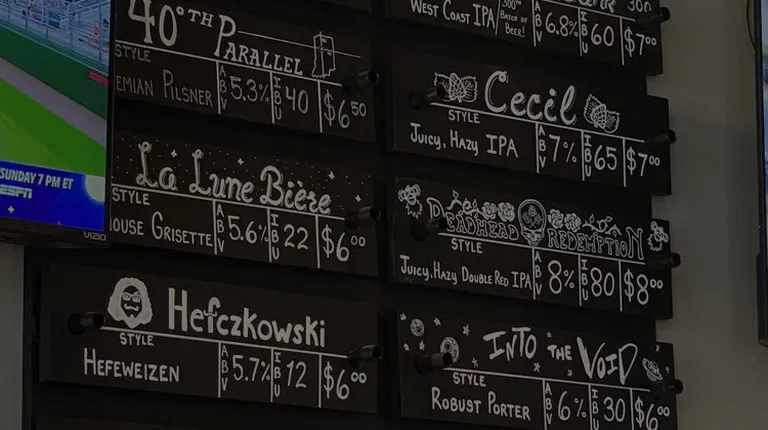 40°TH PARALLEL
STYLE
EMIAN PILSNER ABV 5.3% IBU 40 $6.50
La Lune Bière
STYLE
OUSE GRISETTE ABV 5.6% IBU 22 $6.00
Hefczkowski
STYLE
HEFEWEIZEN ABV 5.7% IBU 12 $6.00
WEST COAST IPA/ 300TH BATCH OF BEER! ABV 6.8% IBU 60 $7.00
300
Cecil
STYLE
JUICY, HAZY IPA ABV 7% IBU 65 $7.00
DEADHEAD REDEMPTION
STYLE
JUICY, HAZY DOUBLE RED IPA ABV 8% IBU 80 $8.00
INTO THE VOID
STYLE
ROBUST PORTER ABV 6% IBU 30 $6.00
SUNDAY 7 PM ET
ESPN
VIZIO